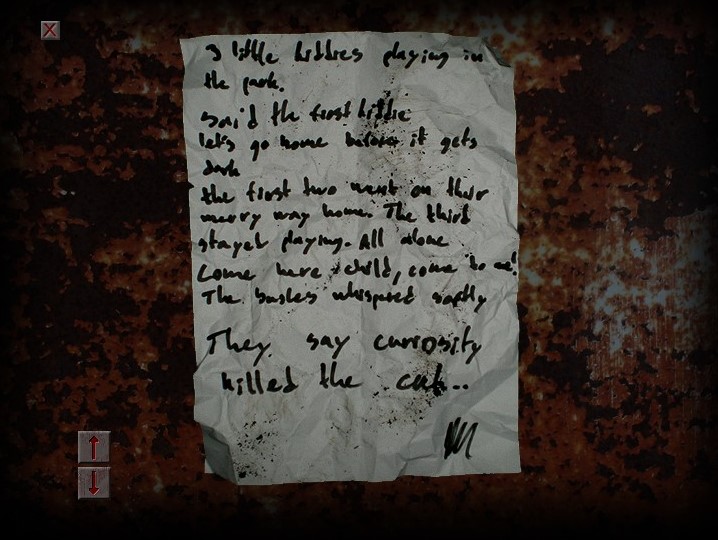 3 little kiddies playing in
the park.
said the first kiddie
let's go home before it gets
dark
the first two went on their
merry way home. The third
stayed playing. All alone
Come here child, come to me!
The bushes whispered softly
They say curiosity
killed the cat...